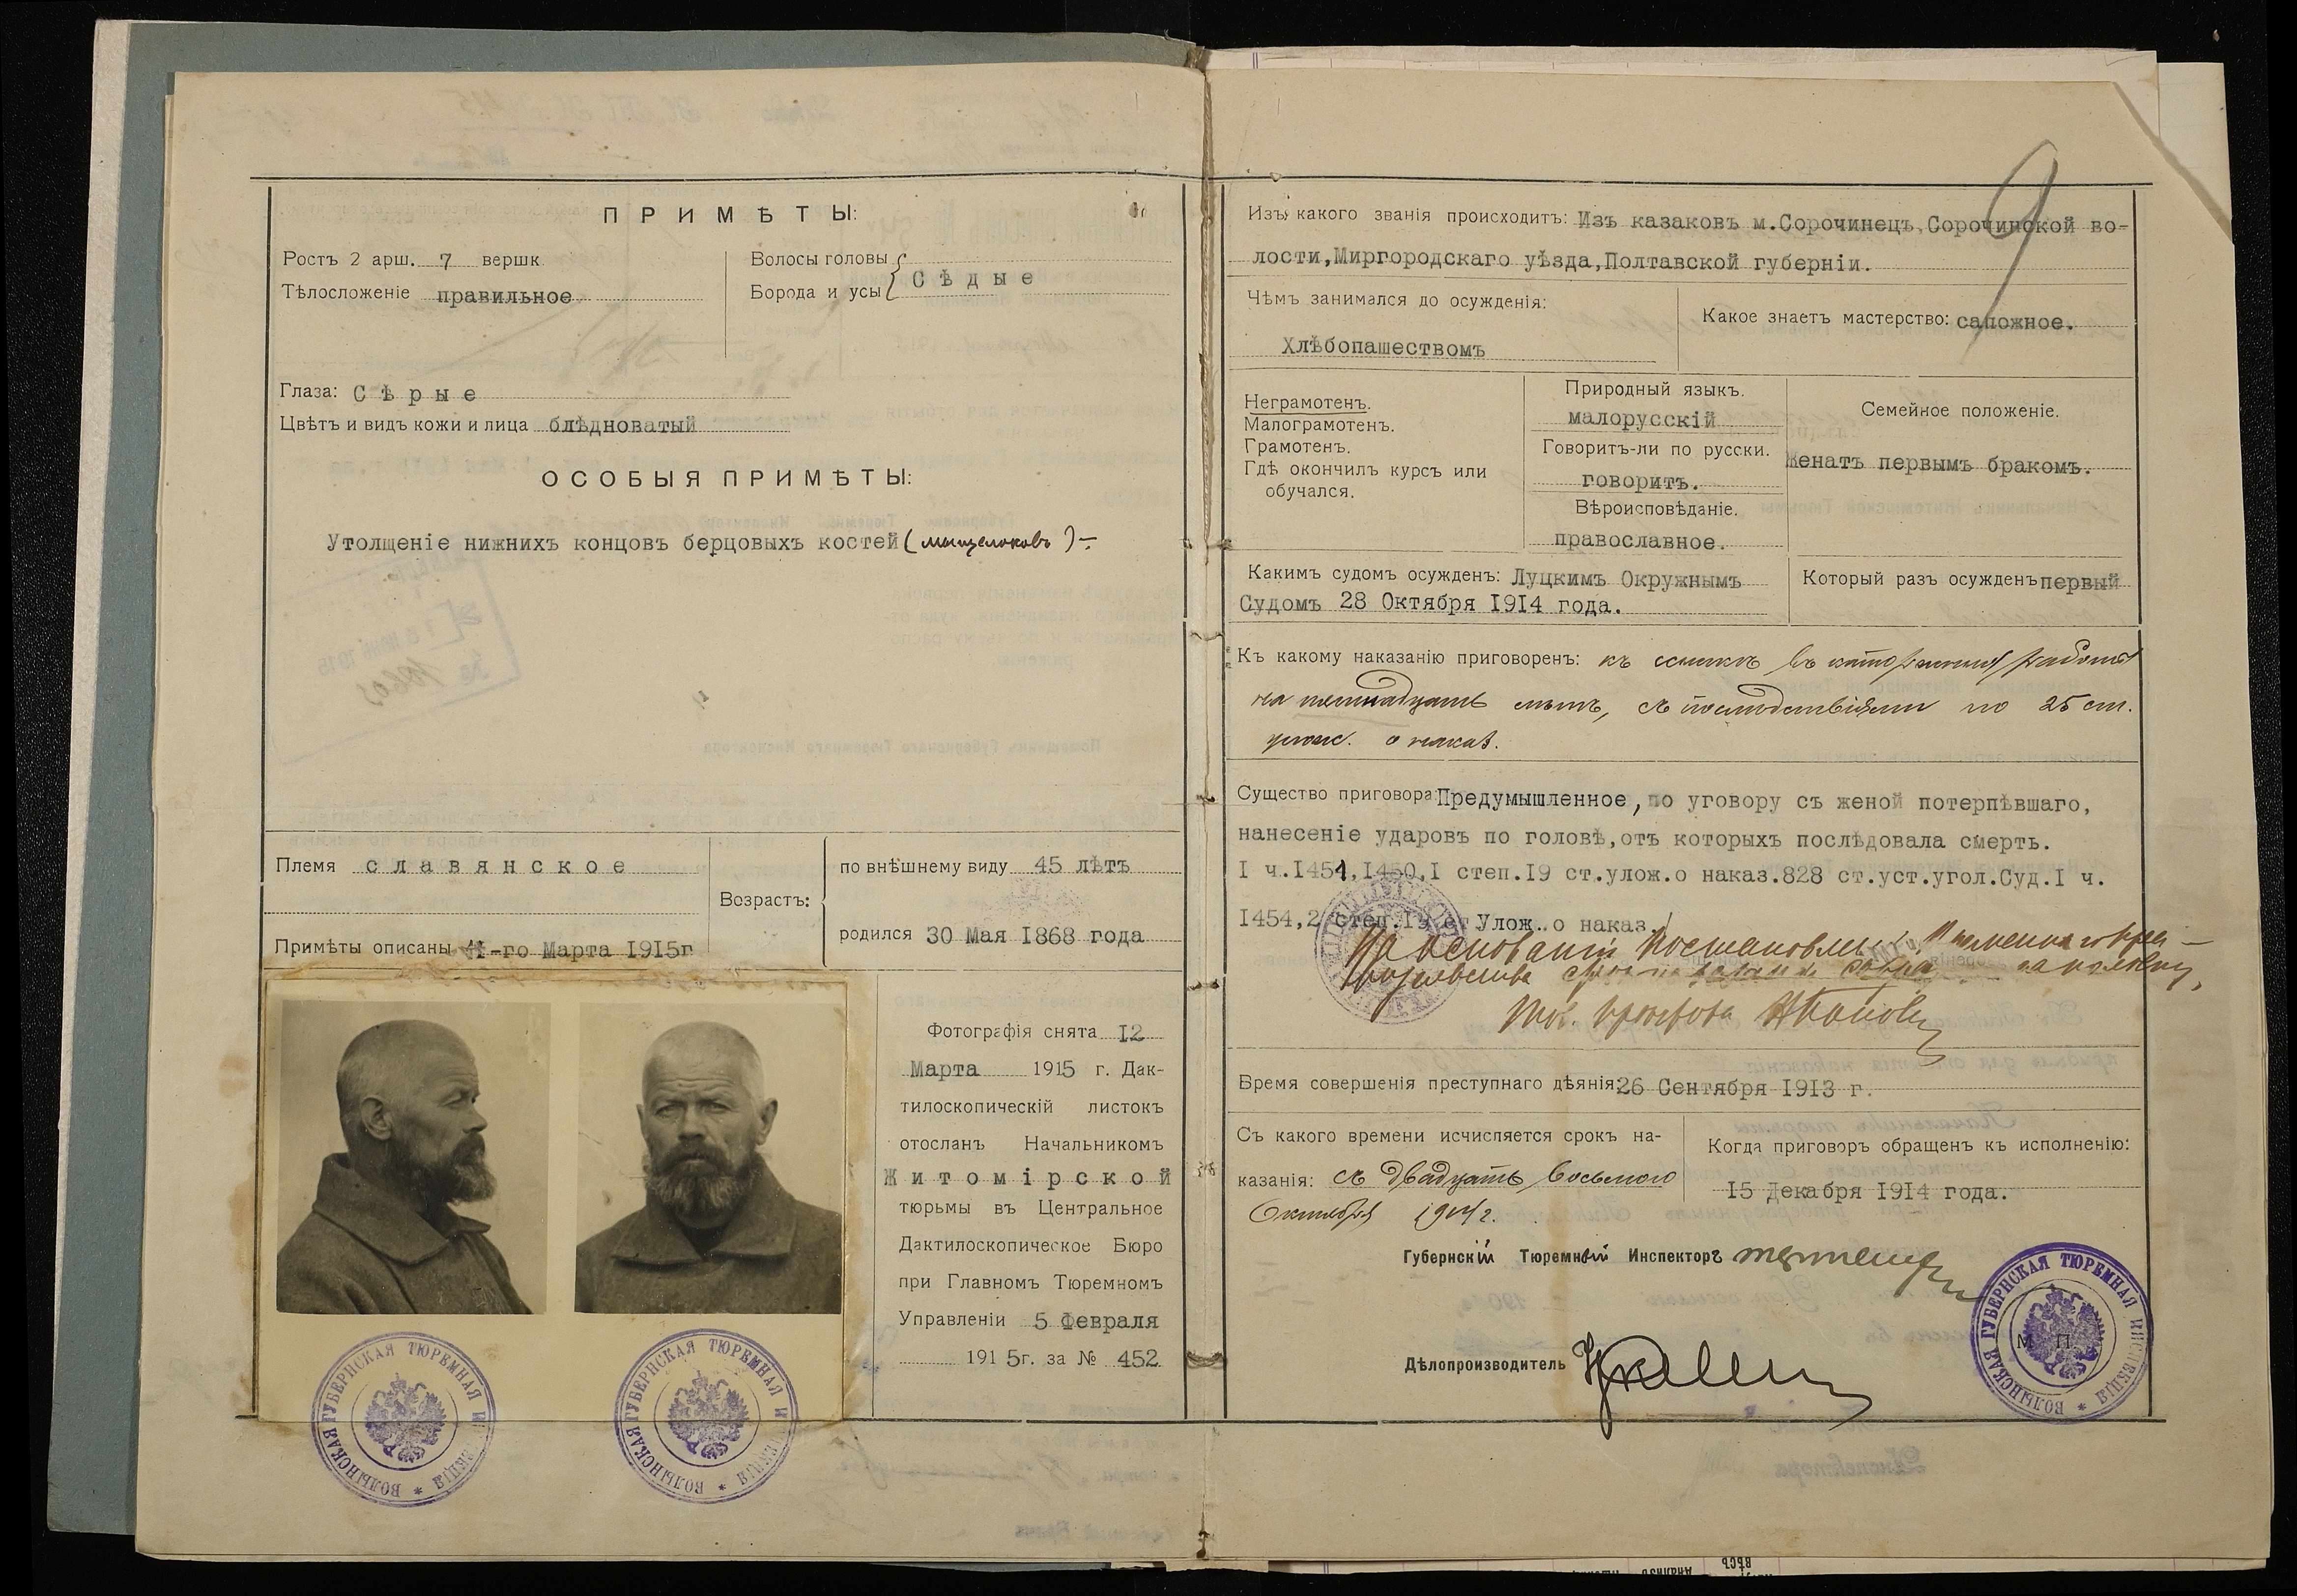 ПРИМѢТЫ:
Ростъ 2 арш. 7 вершк
Тѣлосложеніе правильное
Волосы головы
Борода и усы
Сѣдые
Глаза: Сѣрые
Цвѣтъ и видъ кожи и лица блѣдноватый
ОСОБЫЯ ПРИМѢТЫ:
Утолщеніе нижнихъ концовъ берцовыхъ костей (мыщелоковъ)
Племя славянское
Возрастъ:
по внѣшнему виду 45 лѣтъ
родился 30 Мая 1868 года
Примѣты описаны 11-го Марта 1915г
Фотографія снята 12
Марта 1915 г. Дак-
тилоскопическій листокъ
отосланъ Начальникомъ
Житомірской
тюрьмы въ Центральное
Дактилоскопическое Бюро
при Главномъ Тюремномъ
Управленіи 5 Февраля
1915г. за № 452
ВОЛЫНСКАЯ ГУБЕРНСКАЯ ТЮРЕМНАЯ
ВОЛЫНСКАЯ ГУБЕРНСКАЯ ТЮРЕМНАЯ
9
Изъ какого званія происходитъ: Изъ казаковъ м.Сорочинецъ,Сорочинской во-
лости,Миргородскаго уѣзда,Полтавской губерніи.
Чѣмъ занимался до осужденія:
Хлѣбопашествомъ
Какое знаетъ мастерство: сапожное.
Неграмотенъ.
Малограмотенъ.
Грамотенъ.
Гдѣ окончилъ курсъ или
обучался.
Природный языкъ.
малорусскій
Говоритъ-ли по русски.
говоритъ.
Вѣроисповѣданіе.
православное.
Семейное положеніе.
Женатъ первымъ бракомъ.
Какимъ судомъ осужденъ: Луцкимъ Окружнымъ
Судомъ 28 Октября 1914 года.
Который разъ осужденъ первый
Къ какому наказанію приговоренъ: къ ссылкѣ въ каторжныя работы
на пятнадцать лѣтъ, съ послѣдствіями по 25 ст.
улож. о наказ.
Существо приговора: Предумышленное, по уговору съ женой потерпѣвшаго,
нанесеніе ударовъ по головѣ,отъ которыхъ послѣдовала смерть.
I ч.1451,1450,I степ.19 ст.улож.о наказ.828 ст.уст.угол.Суд.I ч.
1454,2 степ.19 ст Улож. о наказ.
На основаніи Постановленія Временнаго Пра-
вительства срокъ на половину
Время совершенія преступнаго дѣянія: 26 Сентября 1913 г.
Съ какого времени исчисляется срокъ на-
казанія: съ двадцать восьмого
Октября 1914 г.
Когда приговоръ обращенъ къ исполненію:
15 Декабря 1914 года.
Губернскій Тюремный Инспекторъ
Дѣлопроизводитель
М. П.
ВОЛЫНСКАЯ ГУБЕРНСКАЯ ТЮРЕМНАЯ ИНСПЕКЦІЯ